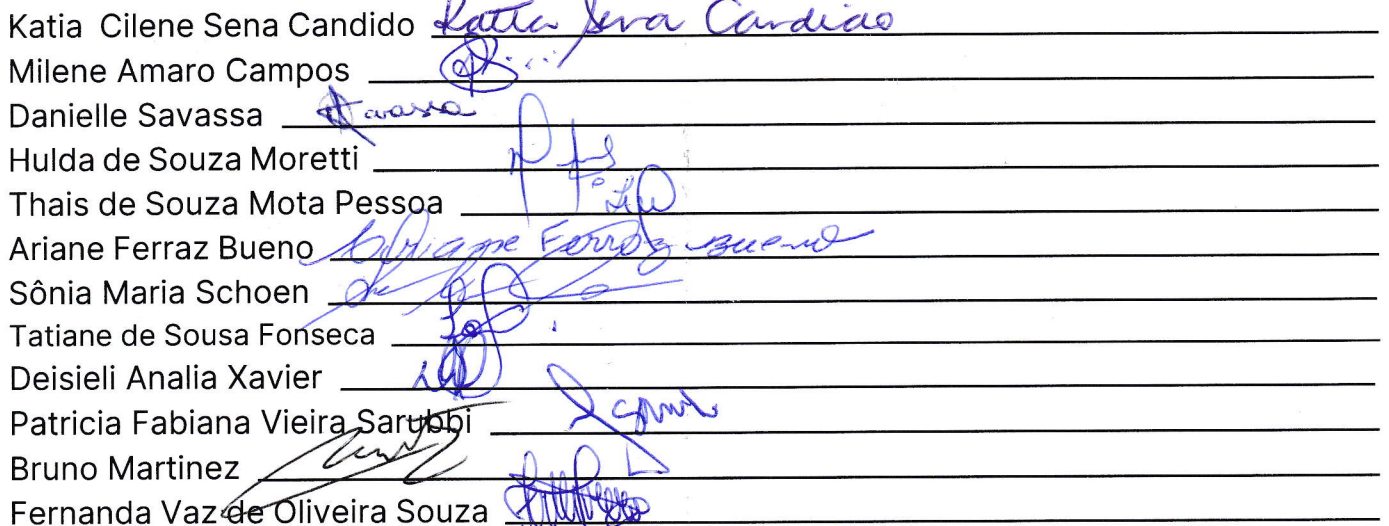 Katia Cilene Sena Candido Katia Sena Candido
Milene Amaro Campos
Danielle Savassa Savassa
Hulda de Souza Moretti
Thais de Souza Mota Pessoa
Ariane Ferraz Bueno Ariane Ferraz Bueno
Sônia Maria Schoen
Tatiane de Sousa Fonseca
Deisieli Analia Xavier
Patricia Fabiana Vieira Sarubbi
Bruno Martinez
Fernanda Vaz de Oliveira Souza